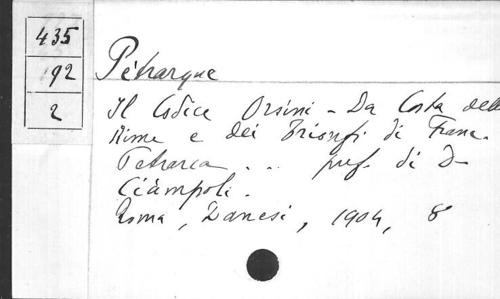 435
92
2
Pétrarque
Il Codice Orsini - Da Costa delle
Rime e dei Trionfi di Franc.
Petrarca . . . pref. di D
Ciàmpoli.
Roma, Danesi, 1904, 8